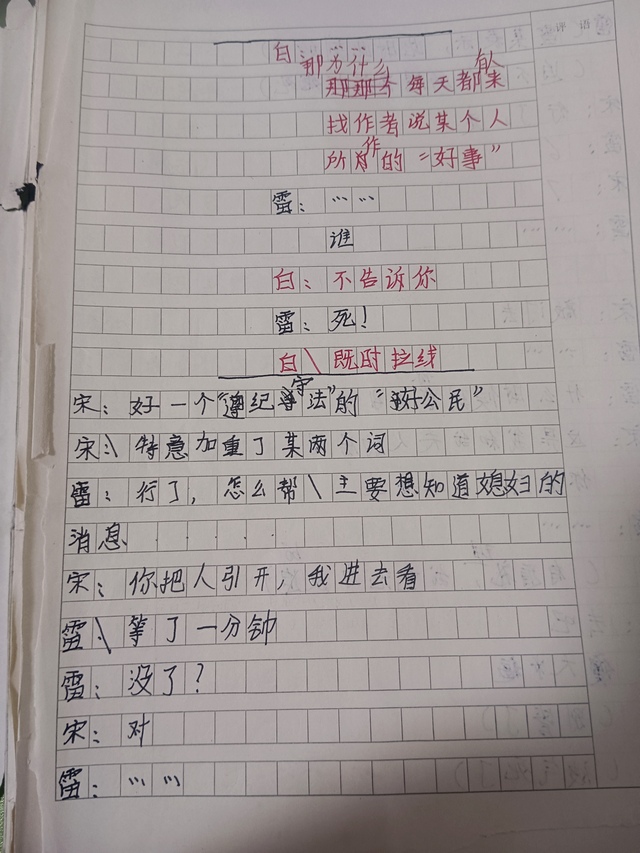 白:那为什么
每天都有人来
找作者说某个人
所作的“好事”
雷:……
谁
白:不告诉你
雷:死!
白\既时拉线
宋:好一个“遵纪守法”的“好公民”
宋:\特意加重了某两个词
雷:行了,怎么帮\主要想知道媳妇的
消息
宋:你把人引开,我进去看
雷\等了一分钟
雷:没了?
宋:对
雷:……